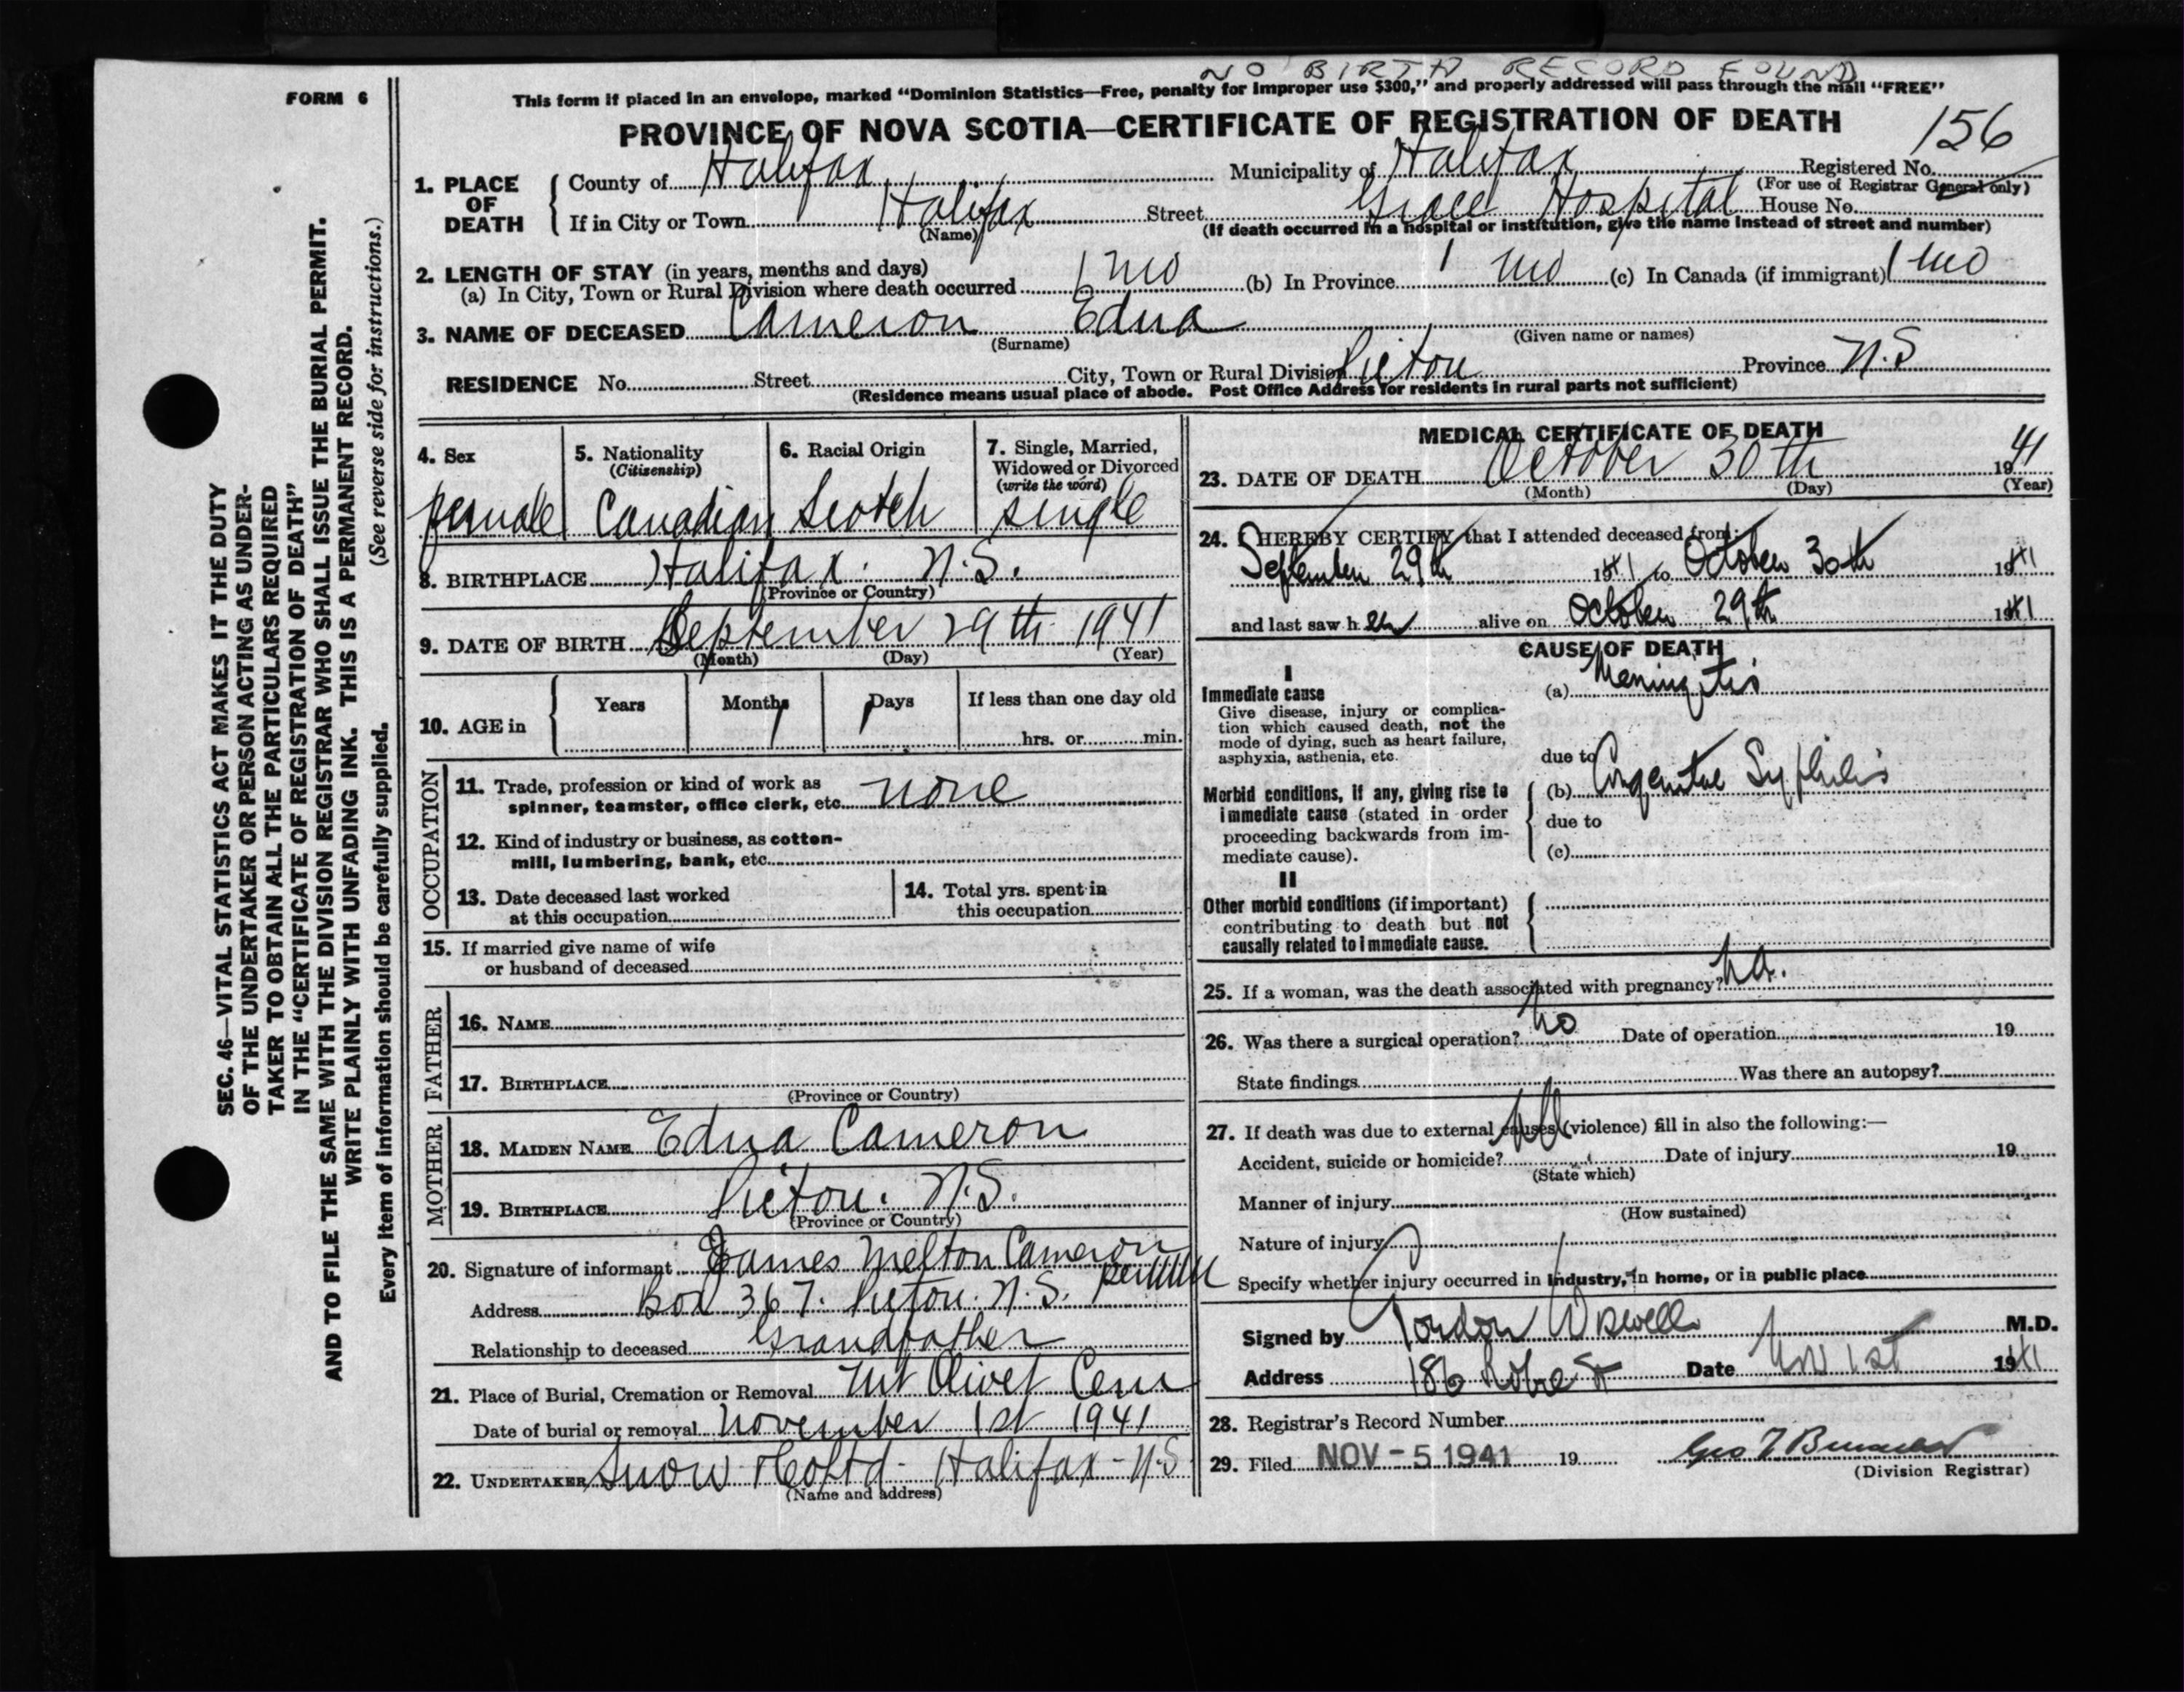 NO BIRTH RECORD FOUND
FORM 6
This form if placed in an envelope, marked “Dominion Statistics—Free, penalty for improper use $300,” and properly addressed will pass through the mail “FREE”
PROVINCE OF NOVA SCOTIA—CERTIFICATE OF REGISTRATION OF DEATH
156
1. PLACE OF DEATH
County of Halifax Municipality of Halifax Registered No.
(For use of Registrar General only)
If in City or Town Halifax Street Grace Hospital House No.
(Name) (If death occurred in a hospital or institution, give the name instead of street and number)
2. LENGTH OF STAY (in years, months and days)
(a) In City, Town or Rural Division where death occurred 1 mo (b) In Province 1 mo (c) In Canada (if immigrant) 1 mo
3. NAME OF DECEASED Cameron Edna
(Surname) (Given name or names)
RESIDENCE No. Street City, Town or Rural Division Pictou Province N.S
(Residence means usual place of abode. Post Office Address for residents in rural parts not sufficient)
4. Sex female
5. Nationality (Citizenship) Canadian
6. Racial Origin Scotch
7. Single, Married, Widowed or Divorced (write the word) single
8. BIRTHPLACE Halifax. N.S.
(Province or Country)
9. DATE OF BIRTH September 29th 1941
(Month) (Day) (Year)
10. AGE in Years Months 1 Days 1 If less than one day old
hrs. or min.
OCCUPATION
11. Trade, profession or kind of work as
spinner, teamster, office clerk, etc. none
12. Kind of industry or business, as cotton-
mill, lumbering, bank, etc.
13. Date deceased last worked
at this occupation
14. Total yrs. spent in
this occupation
15. If married give name of wife
or husband of deceased
FATHER
16. NAME
17. BIRTHPLACE
(Province or Country)
MOTHER
18. MAIDEN NAME Edna Cameron
19. BIRTHPLACE Pictou. N.S.
(Province or Country)
20. Signature of informant James Melton Cameron
Address Box 367. Pictou. N.S.
Relationship to deceased Grandfather
21. Place of Burial, Cremation or Removal Mt Olivet Cem
Date of burial or removal November 1st 1941
22. UNDERTAKER Snow & Co Ltd - Halifax - N.S
(Name and address)
MEDICAL CERTIFICATE OF DEATH
23. DATE OF DEATH October 30th 1941
(Month) (Day) (Year)
24. I HEREBY CERTIFY that I attended deceased from
September 29th 1941 to October 30th 1941
and last saw her alive on October 29th 1941
CAUSE OF DEATH
I
Immediate cause
Give disease, injury or complica-
tion which caused death, not the
mode of dying, such as heart failure,
asphyxia, asthenia, etc.
(a) Meningitis
due to
Morbid conditions, if any, giving rise to
immediate cause (stated in order
proceeding backwards from im-
mediate cause).
(b) Congenital Syphilis
due to
(c)
II
Other morbid conditions (if important)
contributing to death but not
causally related to immediate cause.
25. If a woman, was the death associated with pregnancy? no.
26. Was there a surgical operation? No Date of operation 19
State findings Was there an autopsy?
27. If death was due to external causes (violence) fill in also the following:—
Accident, suicide or homicide? Date of injury 19
(State which)
Manner of injury
(How sustained)
Nature of injury
Specify whether injury occurred in industry, in home, or in public place
Signed by Gordon Wiswell M.D.
Address 186 Robie St Date Nov 1st 1941
28. Registrar's Record Number
29. Filed NOV - 5 1941 19
(Division Registrar)
SEC. 46—VITAL STATISTICS ACT MAKES IT THE DUTY
OF THE UNDERTAKER OR PERSON ACTING AS UNDER-
TAKER TO OBTAIN ALL THE PARTICULARS REQUIRED
IN THE “CERTIFICATE OF REGISTRATION OF DEATH”
AND TO FILE THE SAME WITH THE DIVISION REGISTRAR WHO SHALL ISSUE THE BURIAL PERMIT.
WRITE PLAINLY WITH UNFADING INK. THIS IS A PERMANENT RECORD.
(See reverse side for instructions.)
Every item of information should be carefully supplied.